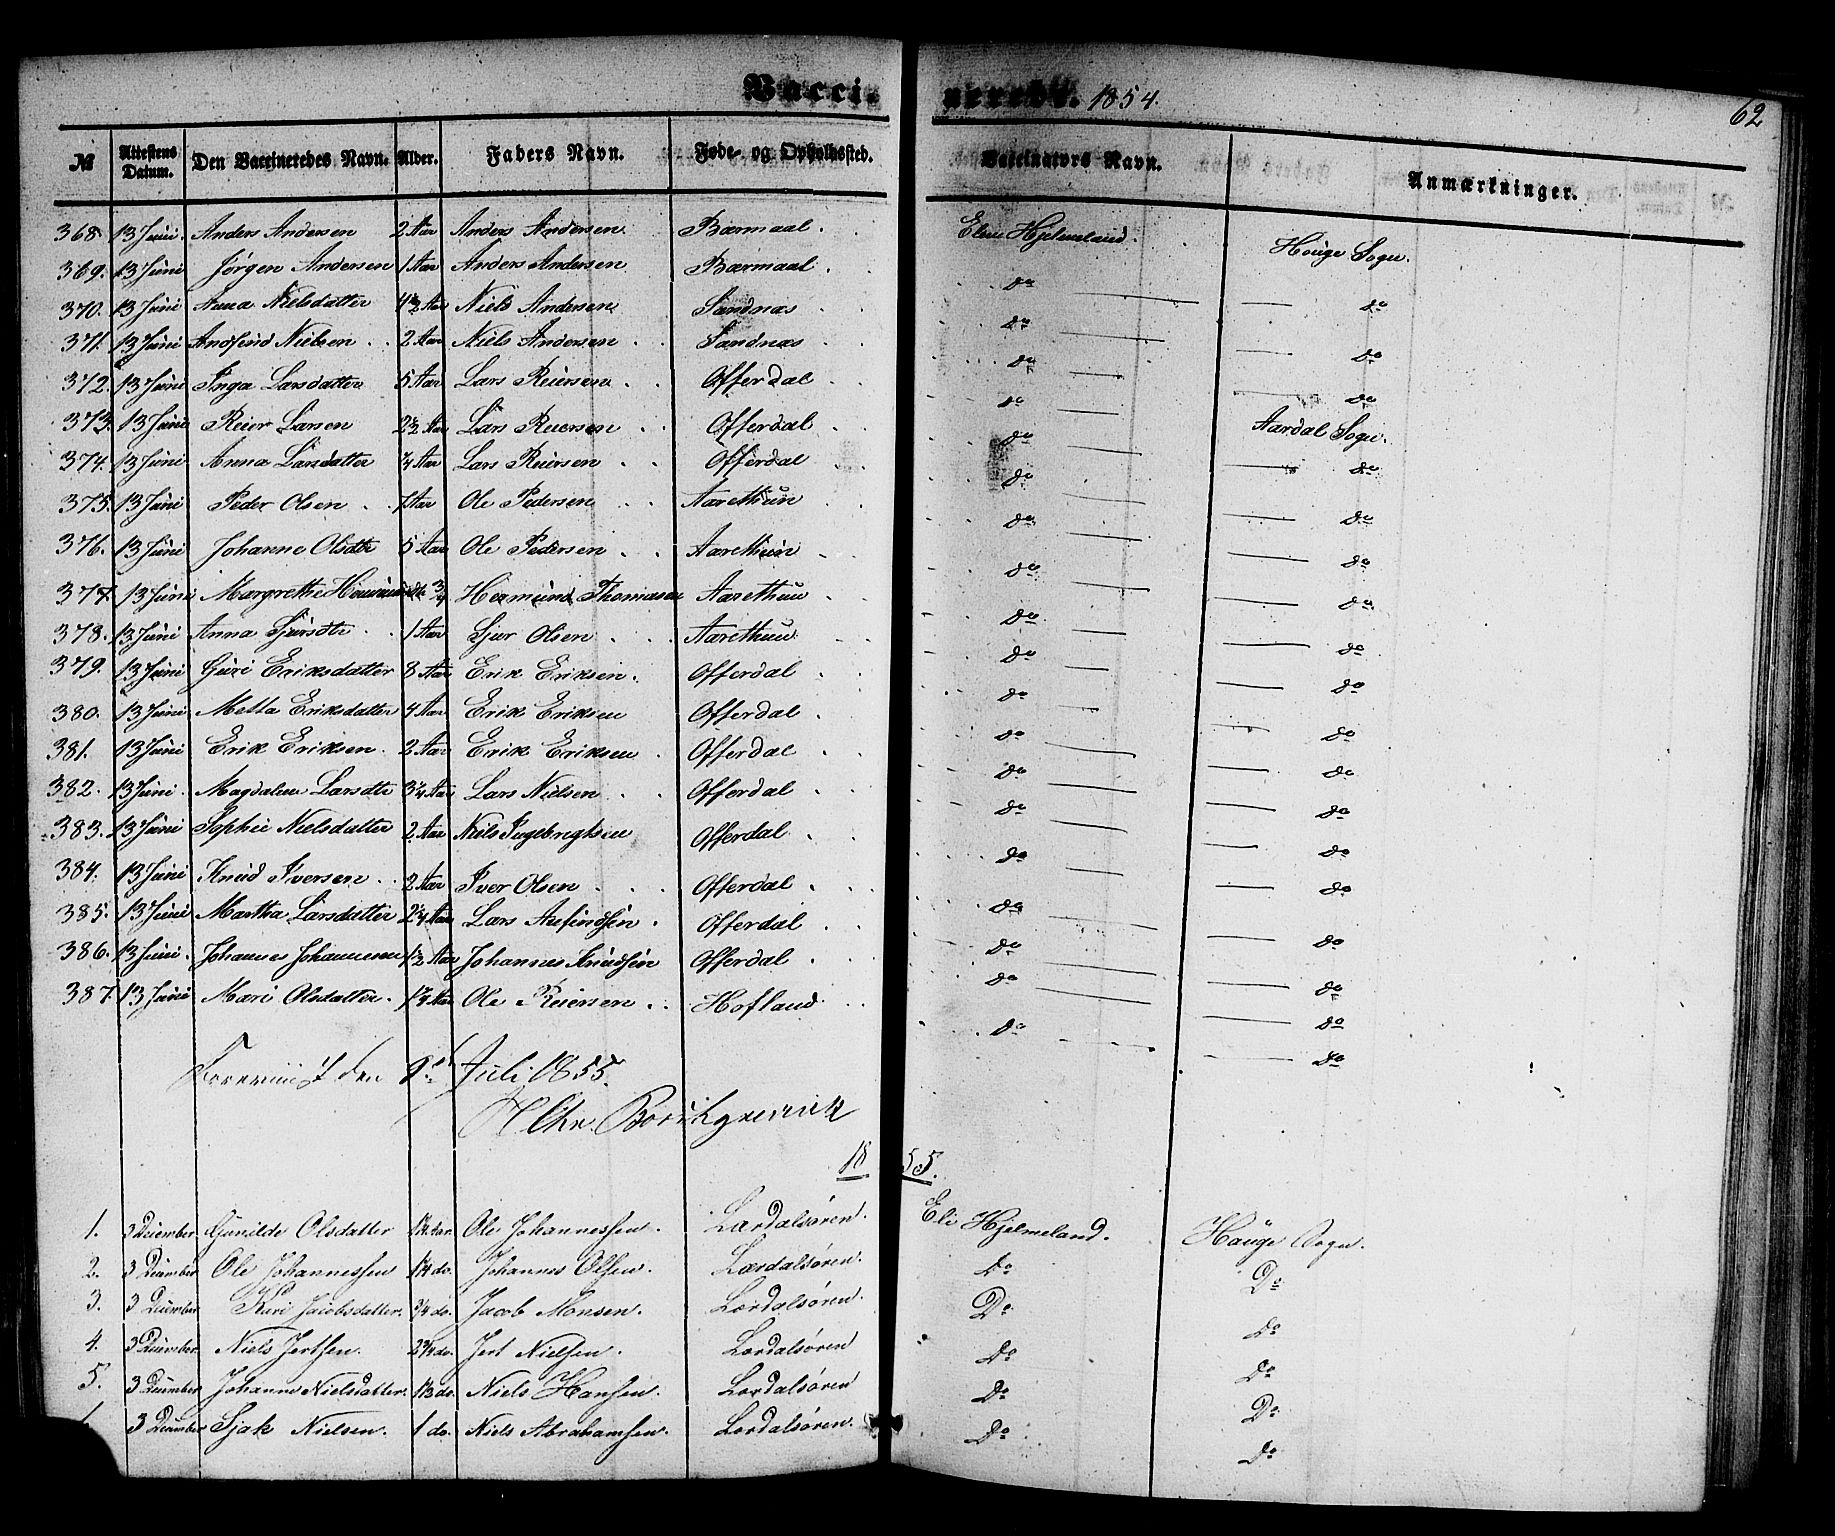 Vaccinerede. 1854. 62
№ Attestens Datum. Den Vaccineredes Navn. Alder. Faders Navn. Føde- og Opholdssted. Vaccinators Navn. Anmærkninger.
368. 13 Juni. Anders Andersen 2 Aar Anders Andersen Bærmaal Hjelmeland. Hauge Sogn.
369. 13 Juni Jørgen Andersen 1 Aar Anders Andersen Bærmaal. do do
370. 13 Juni Anna Nielsdatter 4½ Aar Niels Andersen Sandnæs do do
371. 13 Juni Andfind Nielsen 2 Aar Niels Andersen Sandnæs do do
372. 13 Juni Inga Larsdatter 5 Aar Lars Reiersen Offerdal do Aardal Sogn.
373. 13 Juni Reier Larsen 2½ Aar Lars Reiersen Offerdal do do
374. 13 Juni Anna Larsdatter ¾ Aar Lars Reiersen Offerdal do do
375. 13 Juni Peder Olsen 7 Aar Ole Pedersen Aarethun do do
376. 13 Juni Johanne Olsdtr 5 Aar Ole Pedersen Aarethun do do
377. 13 Juni Margrethe ¾ Hermund Thomasen Aarethun do do
378. 13 Juni Anna Sjursdtr 1 Aar Sjur Olsen Aarethun do do
379. 13 Juni Guri Eriksdatter 8 Aar Erik Eriksen. Offerdal do do
380. 13 Juni Metta Eriksdatter 4 Aar Erik Eriksen Offerdal do do
381. 13 Juni Erik Eriksen. 2 Aar Erik Eriksen Offerdal do do
382. 13 Juni. Magdalene Larsdtr 3¼ Aar Lars Nielsen Offerdal do do
383. 13 Juni Sophie Nielsdatter 2 Aar Niels Ingebrigtsen Offerdal do do
384. 13 Juni Knud Iversen 2 Aar Iver Olsen Offerdal do do
385. 13 Juni Martha Larsdatter 2¼ Aar Lars Offerdal do do
386. 13 Juni. Johannes Johannesen 1½ Aar Johannes Knudsen Offerdal do do
387. 13 Juni Mari Olsdatter. 1¼ Aar Ole Reiersen Hofland do do
den Juli 1855.
1855.
1. 3 December Gunilde Olsdatter Ole Johannessen. Lærdalsøren. Eli Hjelmeland. Hauge Sogn.
2. 3 December Ole Johannessen 1¼ do. Johannes Olsen. Lærdalsøren. Do Do
3. 3 December Kari Jacobsdatter. ¾ do. Jacob Monsen. Lærdalsøren. Do Do
4. 3 December Niels Jertsen. 2¾ do. Jert Nielsen. Lærdalsøren Do Do
5. 3 December Johanne Nielsdatter. 1⅓ do. Niels Hansen. Lærdalsøren Do Do
3 December Sjak Nielsen. 1 do. Niels Abrahamsen. Lærdalsøren. Do Do